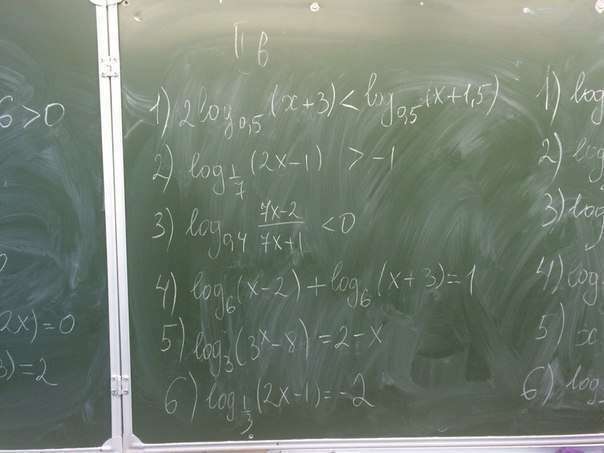 6 > 0
2x) = 0
3) = 2
II в
1) 2log₀,₅(x+3) < log₀,₅(x+1,5)
2) log_{1/7}(2x-1) > -1
3) log₀,₄ (7x-2)/(7x+1) < 0
4) log₆(x-2) + log₆(x+3) = 1
5) log₃(3ˣ-8) = 2-x
6) log_{1/3}(2x-1) = -2
1) log
2) log
3) log
4) log
5) x
6) log